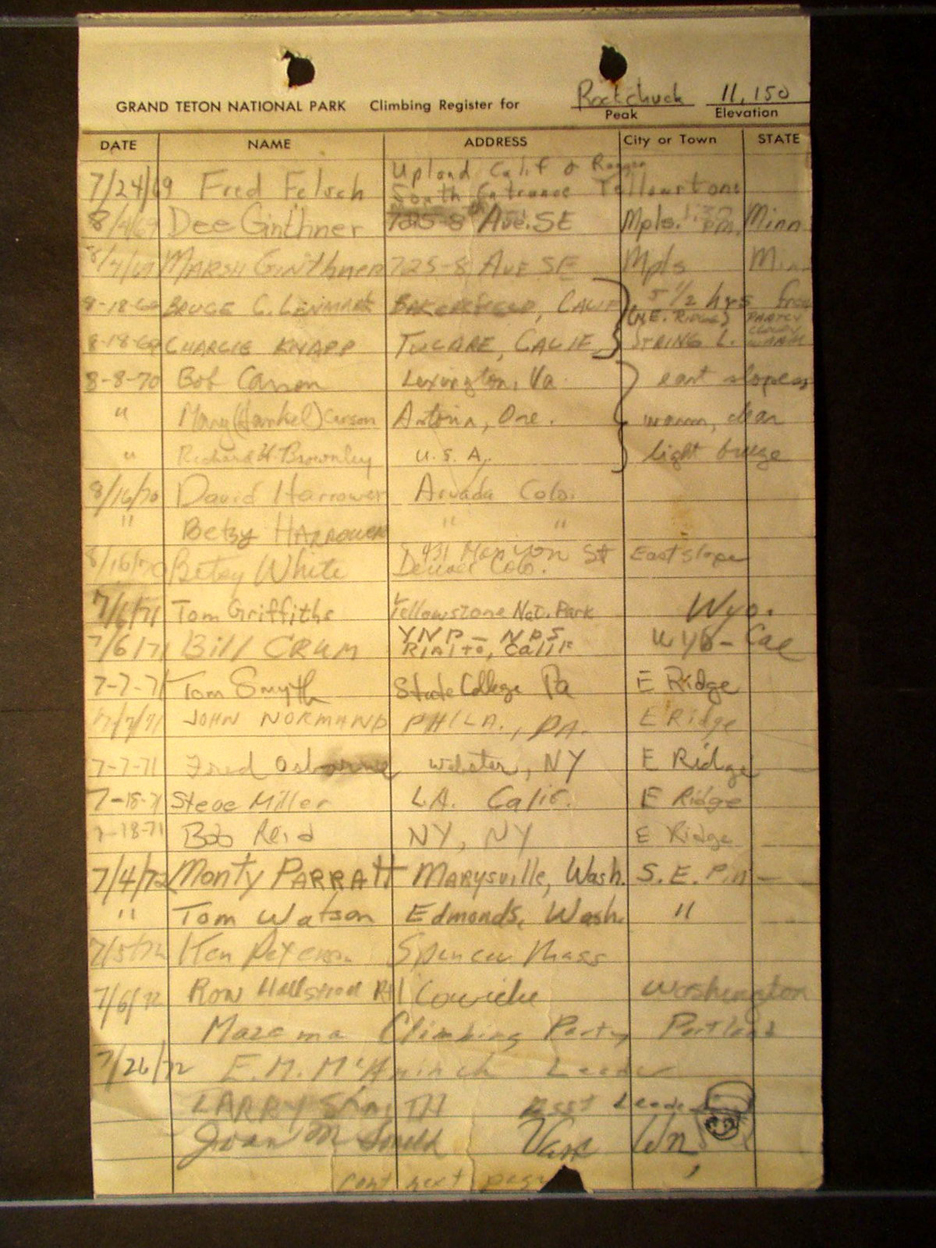 GRAND TETON NATIONAL PARK Climbing Register for Rockchuck 11,150
Peak Elevation
DATE NAME ADDRESS City or Town STATE
7/24/69 Fred Upland Calif
South Entrance Yellowstone
8/4/69 Dee Ginthner 725-8 Ave. SE Mpls. Minn
8/4/69 MARSH GINTHNER 725-8 AVE SE Mpls Minn
8-18-69 BRUCE C. LENMARK BAKERSFIELD, CALIF 5 1/2 hrs from
(N.E. RIDGE) PARTLY CLOUDY
8-18-69 CHARLIE KNAPP TULARE, CALIF STRING L.
8-8-70 Bob Carson Lexington, Va. east slopes
" Mary (Hankel) Carson Astoria, Ore. warm, clear
" Richard H Brownley U.S.A. light breeze
8/16/70 David Harrower Arvada Colo.
" Betsy HARROWER " "
8/16/70 Betsy White 931 St East slope
Denver Colo.
7/6/71 Tom Griffiths Yellowstone Nat. Park Wyo.
7/6/71 Bill CRUM YNP - NPS WYO - Cal
RIALTO, CALIF
7-7-71 Tom Smyth State College Pa E Ridge
7/7/71 JOHN NORMAND PHILA., PA. E Ridge
7-7-71 Fred Osborne Webster, NY E Ridge
7-18-71 Steve Miller L.A. Calif. E Ridge
7-18-71 Bob Reid NY, NY E Ridge
7/4/72 Monty PARRATT MARYSVILLE, Wash. S.E.
" Tom Watson Edmonds, Wash. "
7/5/72 Ken Spencer Mass
7/6/72 Ron Cowiche Washington
Mazama Climbing Party Portland
7/26/72 E.M. McAninch Leader
LARRY SMITH Asst Leader
Joan M Vanc Wn
cont next page